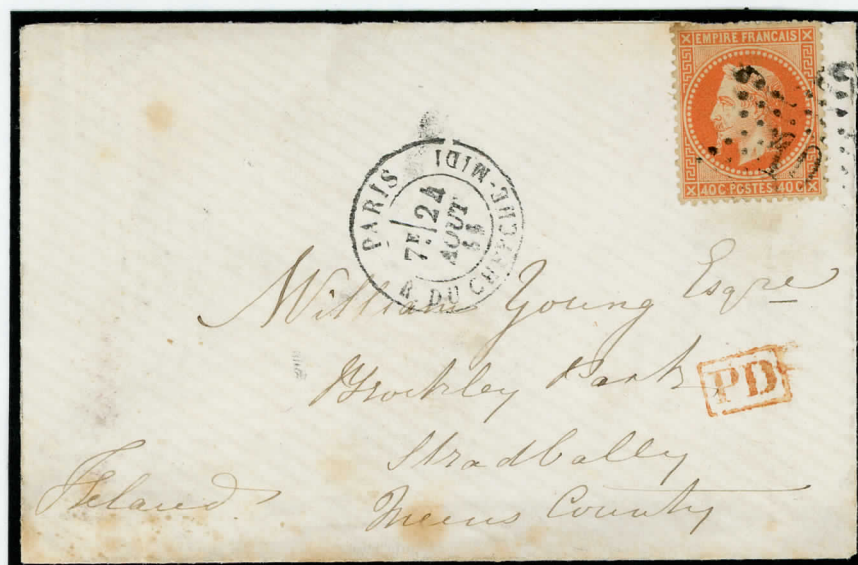 EMPIRE FRANCAIS
40 C·POSTES·40 C
PARIS
R. DU CHERCHE-MIDI
7E/24
AOUT
William Young Esqre
Brockley Park
PD
Stradbally
Queens County
Ireland